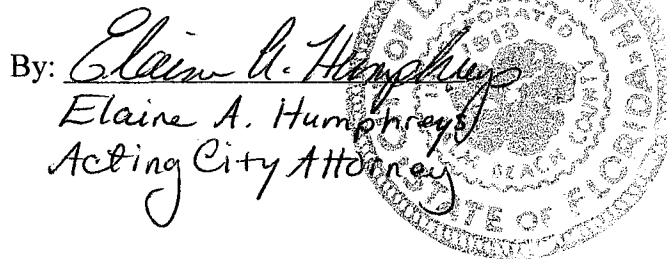 By: Elaine A. Humphreys
Elaine A. Humphreys
Acting City Attorney
INCORPORATED
1913
BEACH COUNTY
STATE OF FLORIDA